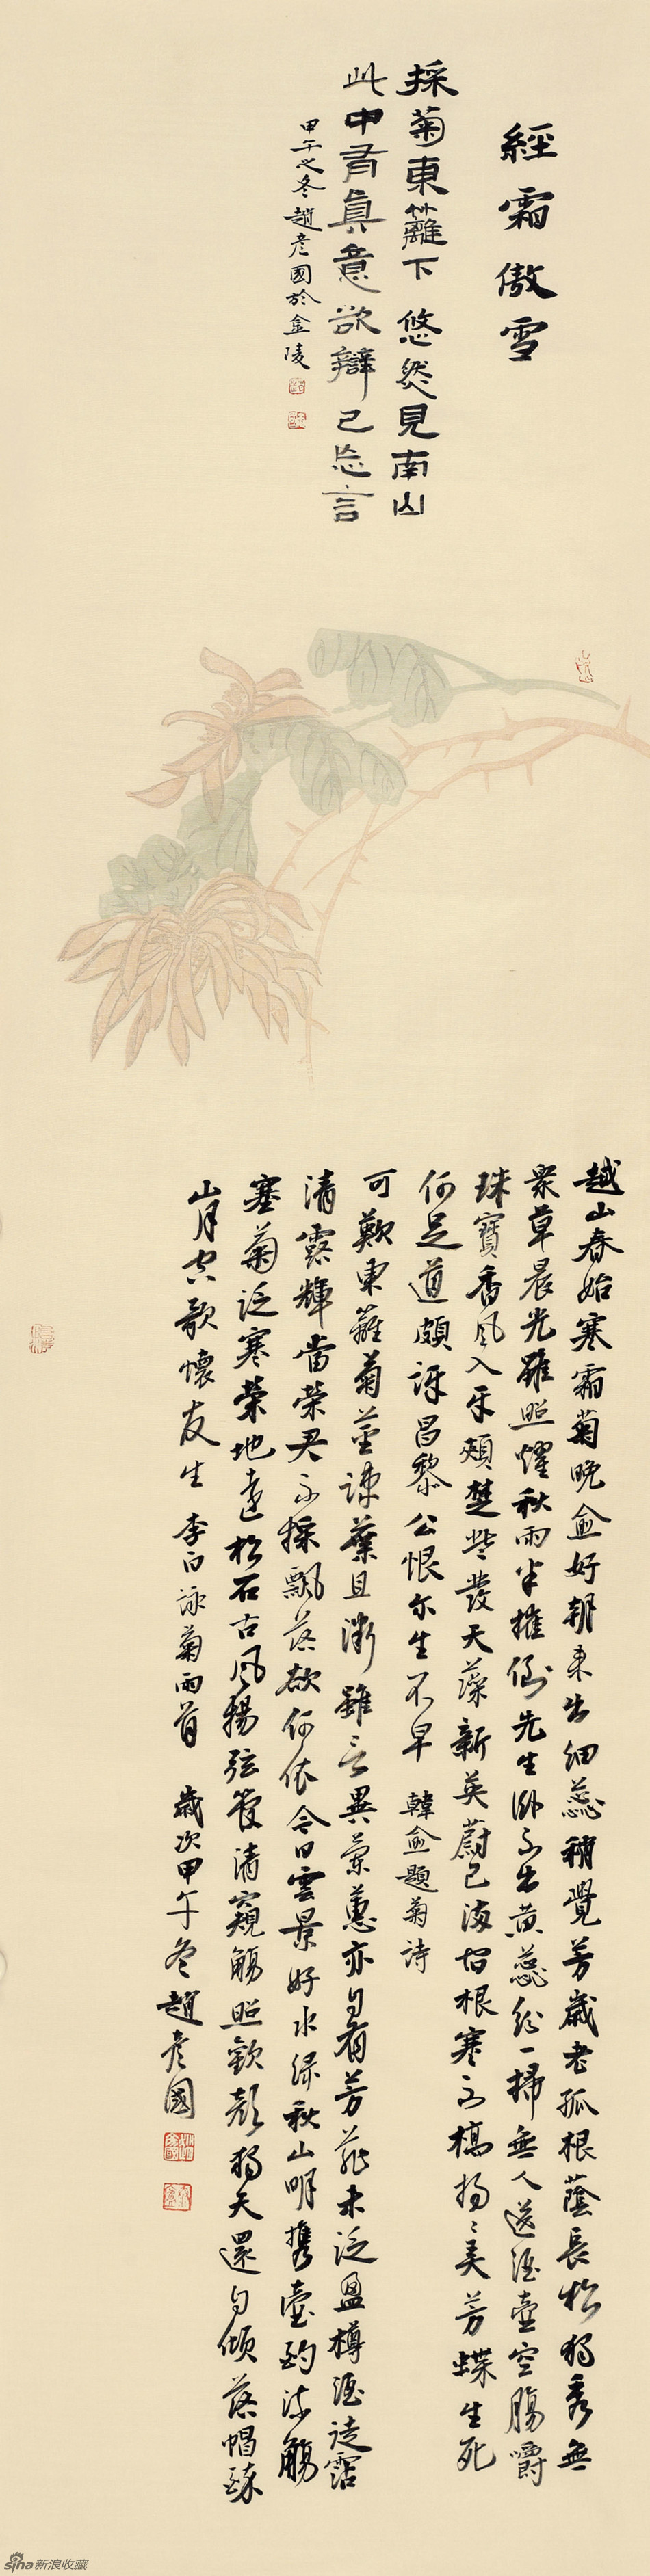 經霜傲雪
採菊東籬下 悠然見南山
此中有真意欲辯已忘言
甲午之冬趙彥國於金陵
越山春始寒霜菊晚愈好朝来出細蕊稍覺芳歲老孤根蔭長松獨秀無
衆草晨光雖照耀秋雨半摧倒先生卧不出黄蕊紛一掃無人送酒壺空腸嚼
珠寶香風入牙頰楚些發天藻新英蔚已滿宿根寒不槁揚〻弄芳蝶生死
何足道頗訝昌黎公恨尔生不早 韓愈題菊詩
可歎東籬菊莖疎葉且微雖言異蘭蕙亦自有芳菲未泛盈樽酒徒霑
清露輝當榮君不採飄落欲何依今日雲景好水綠秋山明攜壺酌流觴
塞菊泛寒榮地遠松石古風揚弦管清窺觴照歡顏獨天還自傾落帽醉
山月空歌懷友生 李白詠菊兩首 歲次甲午冬趙彥國
sina新浪收藏